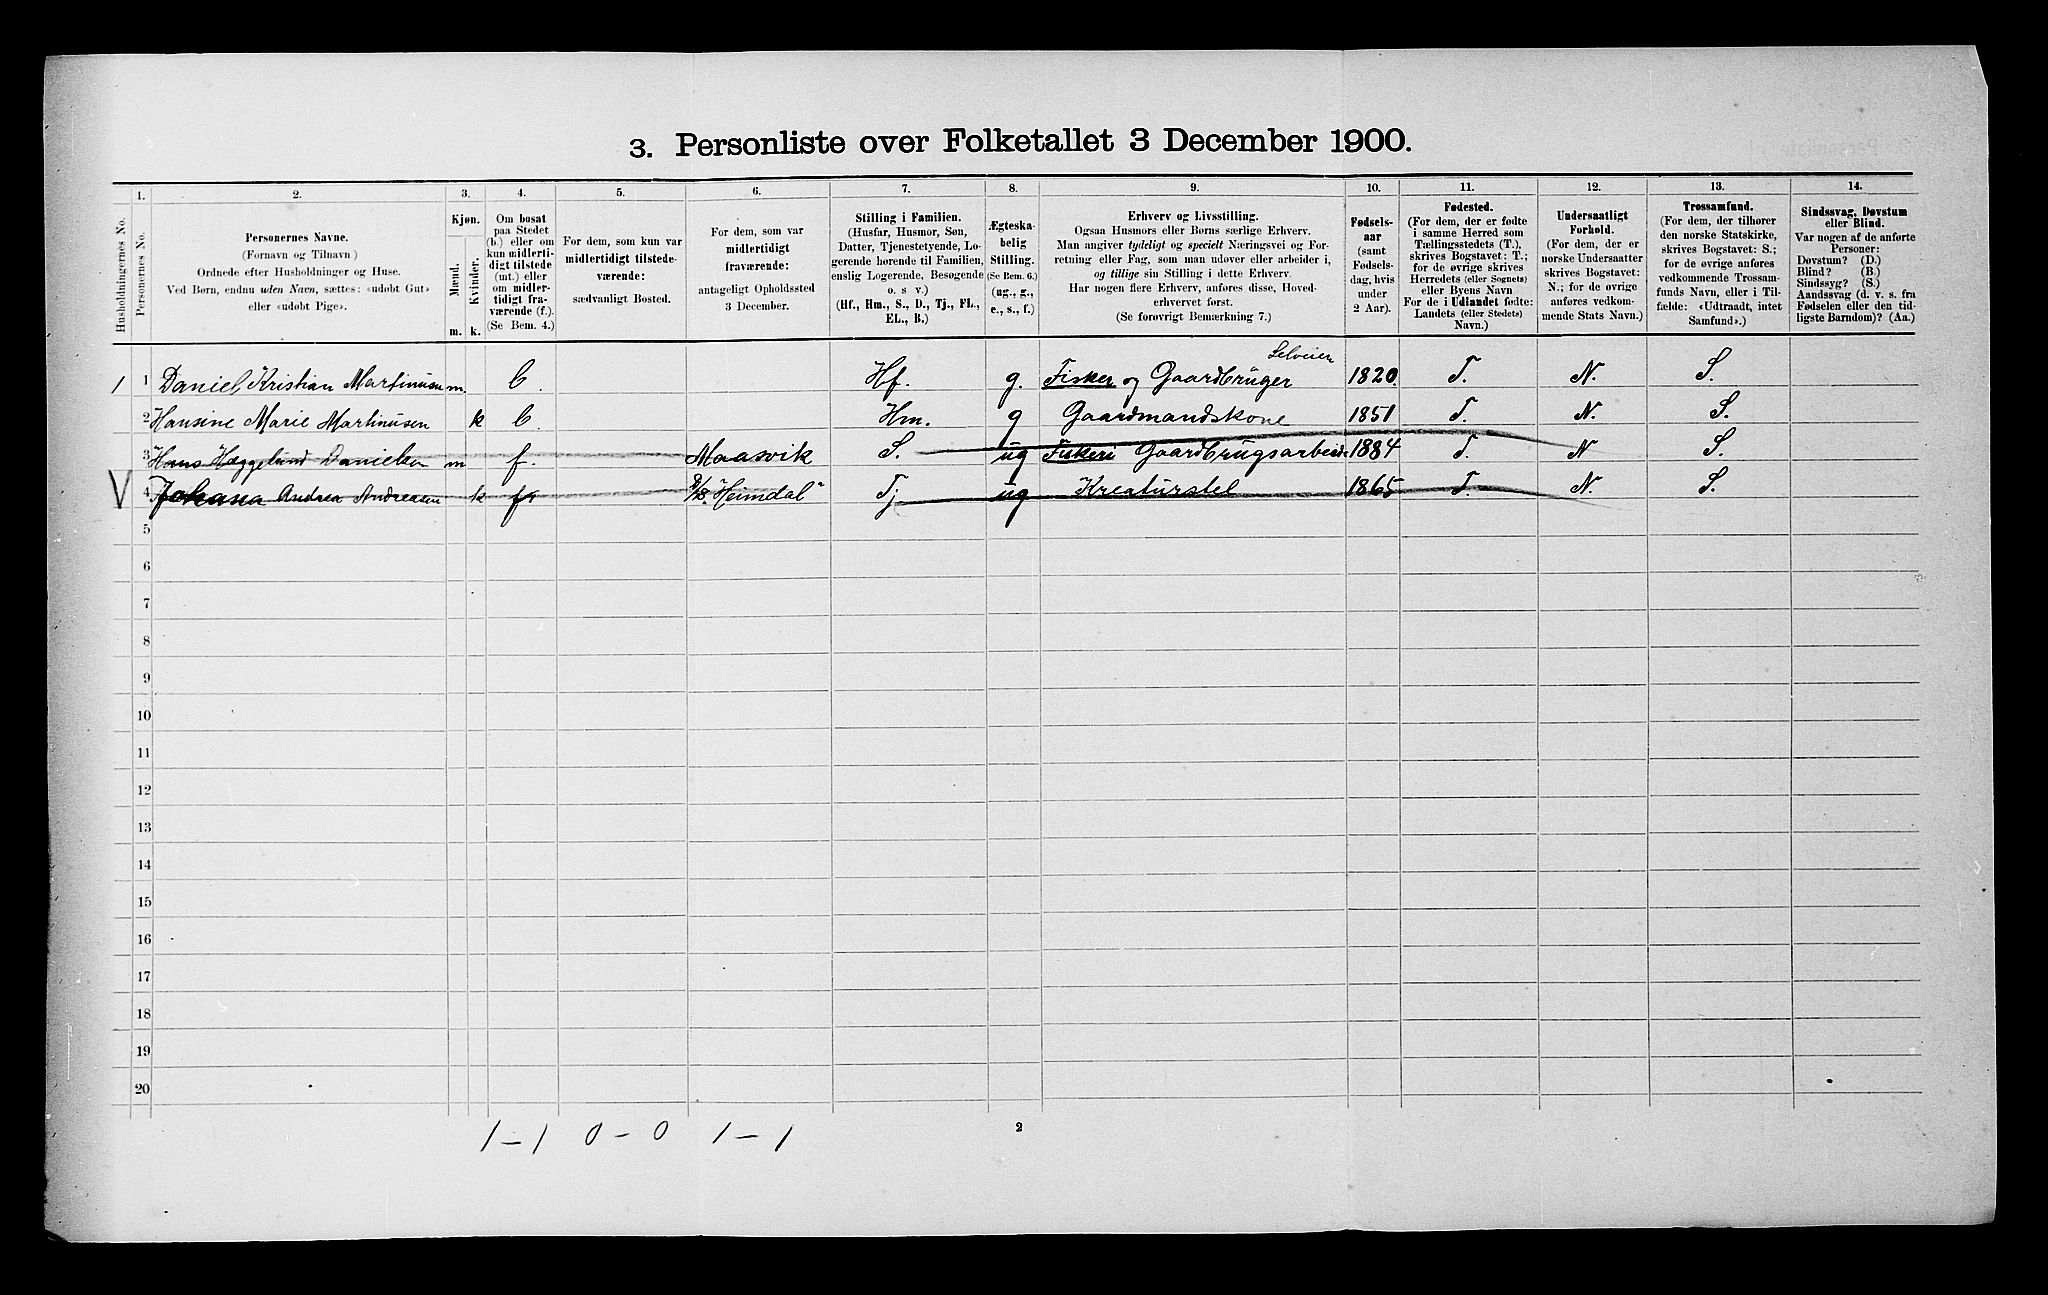 3. Personliste over Folketallet 3 December 1900.
1. 2. 3. 4. 5. 6. 7. 8. 9. 10. 11. 12. 13. 14.
Husholdningernes No.
Personernes No.
Personernes Navne.
(Fornavn og Tilnavn)
Ordnede efter Husholdninger og Huse.
Ved Børn, endnu uden Navn, sættes: «udøbt Gut»
eller «udøbt Pige».
Kjøn.
Mænd.
Kvinder.
m. k.
Om bosat
paa Stedet
(b.) eller om
kun midlerti-
digt tilstede
(mt.) eller
om midler-
tidigt fra-
værende (f.).
(Se Bem. 4.)
For dem, som kun var
midlertidigt tilstede-
værende:
sædvanligt Bosted.
For dem, som var
midlertidigt
fraværende:
antageligt Opholdssted
3 December.
Stilling i Familien.
(Husfar, Husmor, Søn,
Datter, Tjenestetyende, Lo-
gerende hørende til Familien,
enslig Logerende, Besøgende
o. s v.)
(Hf., Hm., S., D., Tj., FL.,
EL., B.)
Ægteska-
belig
Stilling.
(Se Bem. 6.)
(ug., g.,
e., s., f.)
Erhverv og Livsstilling.
Ogsaa Husmors eller Børns særlige Erhverv.
Man angiver tydeligt og specielt Næringsvei og For-
retning eller Fag, som man udøver eller arbeider i,
og tillige sin Stilling i dette Erhverv.
Har nogen flere Erhverv, anføres disse, Hoved-
erhvervet først.
(Se forøvrigt Bemærkning 7.)
Fødsels-
aar
(samt
Fødsels-
dag, hvis
under
2 Aar).
Fødested.
(For dem, der er fødte
i samme Herred som
Tællingsstedets (T.),
skrives Bogstavet: T.;
for de øvrige skrives
Herredets (eller Sognets)
eller Byens Navn
For de i Udlandet fødte:
Landets (eller Stedets)
Navn.)
Undersaatligt
Forhold.
(For dem, der er
norske Undersaatter
skrives Bogstavet:
N.; for de øvrige
anføres vedkom-
mende Stats Navn.)
Trossamfund.
(For dem, der tilhører
den norske Statskirke,
skrives Bogstavet: S.;
for de øvrige anføres
vedkommende Trossam-
funds Navn, eller i Til-
fælde: «Udtraadt, intet
Samfund».)
Sindssvag, Døvstum
eller Blind.
Var nogen af de anførte
Personer:
Døvstum? (D.)
Blind? (B.)
Sindssyg? (S.)
Aandssvag (d. v. s. fra
Fødselen eller den tid-
ligste Barndom)? (Aa.)
Selveier
1 1 Daniel Kristian Martinusen m. b. Hf. g. Fisker og Gaardbruger 1820. T. N. S.
2 Hansine Marie Martinusen k b. Hm. g Gaardmandskone 1851 T. N. S.
3 Hans Hæggelund Danielsen m f. Maasvik S. ug Fiskeri Gaardbrugsarbeide 1884 T. N S.
V 4 Johana Andrea Andreasen k f. D/S. "Heimdal" Tj ug Kreaturstel 1865 T. N. S.
5
6
7
8
9
10
11
12
13
14
15
16
17
18
19
20
1 – 1 0 – 0 1 – 1 2